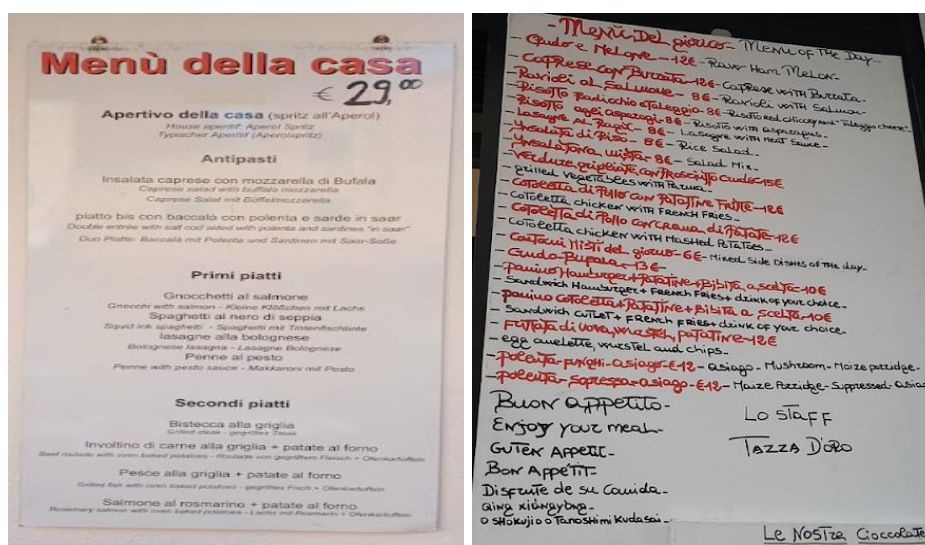 Menù della casa
€ 29,00
Apertivo della casa (spritz all'Aperol)
House aperitif: Aperol Spritz
Typischer Aperitif (Aperolspritz)
Antipasti
Insalata caprese con mozzarella di Bufala
Caprese salad with buffalo mozzarella
Caprese Salat mit Büffelmozzarella
piatto bis con baccalà con polenta e sarde in saor
Double entrée with salt cod sided with polenta and sardines "in saor"
Duo Platte: Baccalà mit Polenta und Sardinen mit Saor-Soße
Primi piatti
Gnocchetti al salmone
Gnocchi with salmon - Kleine Klößchen mit Lachs
Spaghetti al nero di seppia
Squid ink spaghetti - Spaghetti mit Tintenfischtinte
lasagne alla bolognese
Bolognese lasagna - Lasagne Bolognese
Penne al pesto
Penne with pesto sauce - Makkaroni mit Pesto
Secondi piatti
Bistecca alla griglia
Grilled steak - gegrilltes Steak
Involtino di carne alla griglia + patate al forno
Beef roulade with oven baked potatoes - Roulade von gegrilltem Fleisch + Ofenkartoffeln
Pesce alla griglia + patate al forno
Grilled fish with oven baked potatoes - gegrilltes Fisch + Ofenkartoffeln
Salmone al rosmarino + patate al forno
Rosemary salmon with oven baked potatoes - Lachs mit Rosmarin + Ofenkartoffeln
- Menù Del giorno - Menu of The Day -
- Crudo e Melone - 12€ - Raw Ham Melon -
- Caprese con Burrata - 12€ - Caprese with Burrata -
- Ravioli al Salmone - 8€ - Ravioli with Salmon -
- Risotto Radicchio e Taleggio - 8€ - Risotto red chicory and "Taleggio cheese"
- Risotto agli asparagi - 8€ - Risotto with asparagus -
- Lasagne al Ragù - 8€ - Lasagne with meat sauce -
- Insalata di Riso - 8€ - Rice Salad -
- Insalatona mista - 8€ - Salad Mix -
- Verdure grigliate con Prosciutto Crudo - 15€
- grilled vegetables with Parma
- Cotoletta di Pollo con Patatine Fritte - 12€
- Cotoletta chicken with French Fries -
- Cotoletta di Pollo con Crema di Patate - 12€
- Cotoletta chicken with Mashed Potatoes -
- Contorni Misti del giorno - 6€ - Mixed side dishes of the day -
- Crudo Bufala - 13€ -
- panino Hamburger + Patatine + Bibita a scelta - 10€
- Sandwich Hamburger + French Fries + drink of your choice -
- panino cotoletta + Patatine + Bibita a scelta - 10€
- Sandwich cutlet + French Fries + drink of your choice -
- Frittata di uova, wurstel, patatine - 12€
- egg omelette, wurstel and chips -
- polenta - funghi - asiago - €12 - asiago - Mushroom - Maize porridge -
- polenta - sopressa - asiago - €12 - Maize Porridge - Suppressed - asiago
Buon appetito -
Enjoy your meal -
Guten Appetit -
Bon Appétit -
Disfrute de su Comida -
Qing xiǎngyòng -
O shokuji o Tanoshimi Kudasai -
Lo Staff
Tazza D'oro
Le Nostre Cioccolate